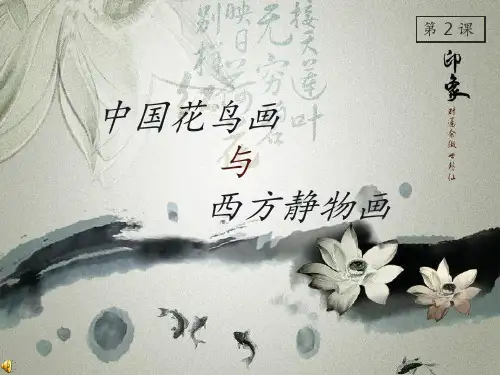 第 2 课
印象
接天莲叶
无穷碧
映日荷花
别样
中国花鸟画
与
西方静物画